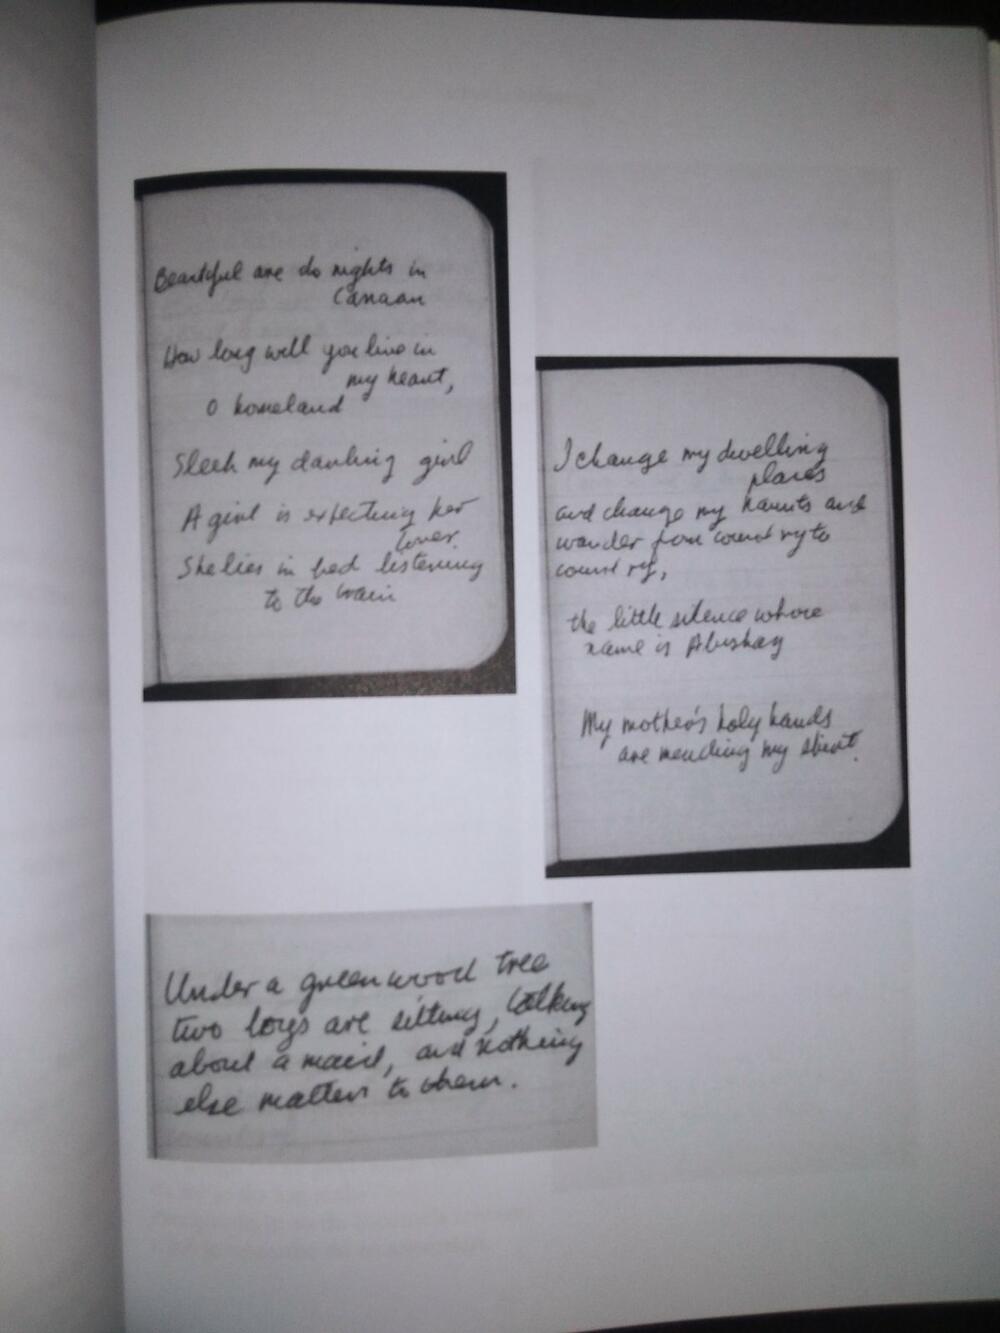 Beautiful are do nights in
Canaan
How long will you live in
my heart,
O homeland
Sleep my darling girl
A girl is expecting her
lover.
She lies in bed listening
to the rain
I change my dwelling
places
and change my haunts and
wander from country to
country,
the little silence whose
name is Abishag
My mother's holy hands
are mending my shirt.
Under a greenwood tree
two boys are sitting, talking
about a maid, and nothing
else matters to them.